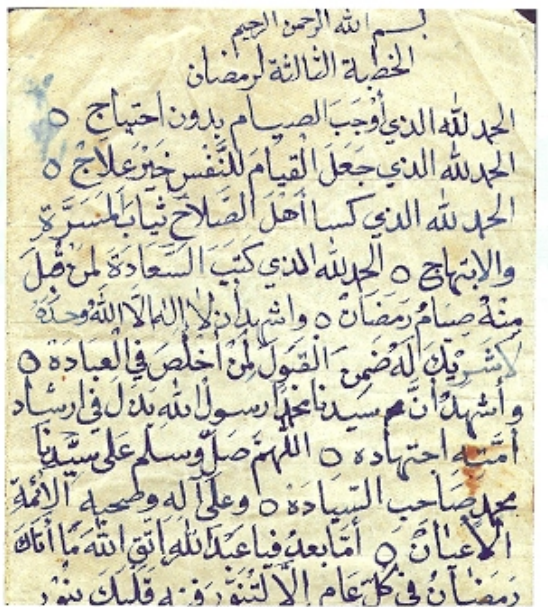 بسم الله الرحمن الرحيم
الخطبة الثالثة لرمضان
الحمد لله الذي أوْجَبَ الصيام بدون احتياج ○
الحمد لله الذي جَعَلَ القيامَ للنَّفْسِ خَيْرَ عِلَاجْ ○
الحمد لله الذي كسا أهْلَ الصَّلَاحْ ثيابَ المَسَرَّةِ
والابتهاج ○ الحمد لله الذي كَتَبَ السَّعَادَةَ لمَنْ قُبِلَ
مِنْهُ صيامُ رمَضَانْ ○ واشهد ان لا إله الا الله وحدَهُ
لا شريكَ لَهْ ضَمِنَ القبولَ لِمَنْ أخْلَصَ في العبادَهْ ○
وأشهدُ أنَّ سيدنا محمدًا رسولُ الله بذلَ في ارشاد
أمَّتِه اجتهاده ○ اللَّهُمَّ صَلِّ وسلم على سيِّدنا
محمدٍ صَاحبِ السِّيادَهْ ○ وعلى آله وصحبه الأئمةِ
الأعيانْ ○ أمَّا بعدُ فيا عبدَ اللهِ اتقِ اللهَ مَا أتاكَ
رمضانُ في كلِّ عام إلَّا لتُنَوِّرَ فيه قلبَكَ بنور